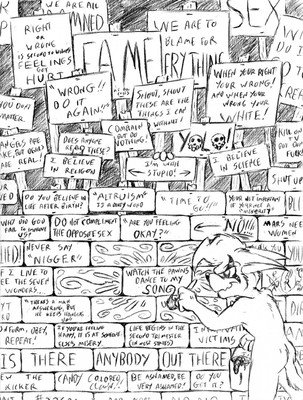 WE ARE ALL
DAMNED
WE ARE TO
BLAME FOR
EVERYTHING
SEX
RIGHT
OR
WRONG
FEELINGS
GET
HURT
FAME
"WRONG!!
DO IT
AGAIN!"
SHOUT, SHOUT
THESE ARE THE
THINGS I CAN
DO WITHOUT!
WHEN YOUR RIGHT
YOUR WRONG!
AND WHEN YOUR
WRONG YOUR
WHITE!
YOU DON'T
MATTER
COMPLAIN
OR DO
NOTHING!
DOES ANYONE
READ THESE?
YOU!
I BELIEVE
IN RELIGION
I'M WITH
STUPID!
I BELIEVE
IN SCIENCE
ARE REAL!
DO YOU BELIEVE IN
LIFE AFTER BIRTH?
"ALTRUISM"
IS A DIRTY WORD
"TIME TO
GO!!!"
YOUR NOT IMPORTANT
IF YOUR NOT A
MINORITY
WHY DID GOD
FAIL TO INVENT
US?
DO NOT COMPLIMENT
THE OPPOSITE SEX
"ARE YOU FEELING
OKAY?"
NO!!!
MARS NEEDS
WOMEN
NEVER SAY
"NIGGER"
I LIVE TO
SEE THE SEVEN
WONDERS..
WATCH THE PAWNS
DANCE TO MY
SONG!
"THERE'S A MAN
ANSWERING, BUT
HE KEEPS HANGING
UP"
CONFORM, OBEY,
REPEAT!
IF YOU'RE FEELING
HAPPY, IT IS AT SOMEONE
ELSES MISERY.
LIFE BEGINS IN THE
SECOND TRIMESTER
(IN MOST STATES)
VICTIMS
IS THERE ANYBODY OUT THERE
THE KICKER
CANDY COLORED
CLOWN!
BE ASHAMED, BE
VERY ASHAMED!
DO YOU
GET IT?